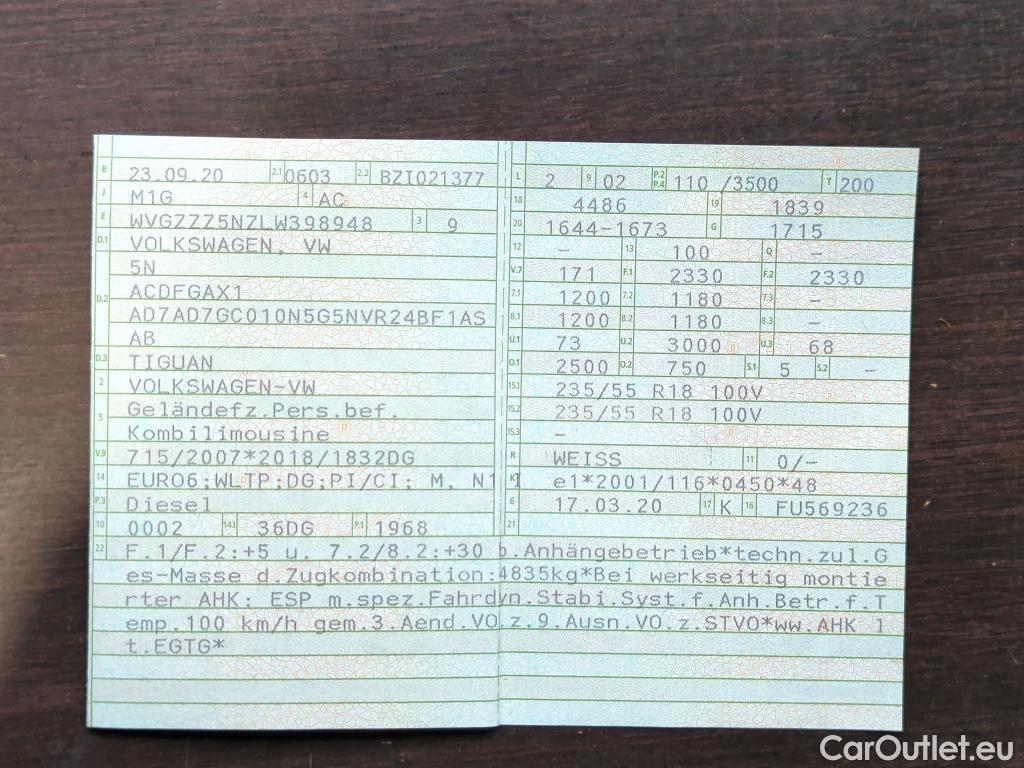 B 23.09.20 2.1 0603 2.2 BZI021377
J M1G 4 AC
E WVGZZZ5NZLW398948 3 9
D.1 VOLKSWAGEN, VW
5N
D.2 ACDFGAX1
AD7AD7GC010N5G5NVR24BF1AS
AB
D.3 TIGUAN
2 VOLKSWAGEN-VW
5 Geländefz.Pers.bef.
Kombilimousine
V.9 715/2007*2018/1832DG
14 EURO6;WLTP;DG;PI/CI; M, N1 I
P.3 Diesel
10 0002 14.1 36DG P.1 1968
L 2 9 02 P.2 P.4 110 /3500 T 200
18 4486 19 1839
20 1644-1673 G 1715
12 – 13 100 Q –
V.7 171 F.1 2330 F.2 2330
7.1 1200 7.2 1180 7.3 –
8.1 1200 8.2 1180 8.3 –
U.1 73 U.2 3000 U.3 68
O.1 2500 O.2 750 S.1 5 S.2 –
15.1 235/55 R18 100V
15.2 235/55 R18 100V
15.3 –
R WEISS 11 0/–
K e1*2001/116*0450*48
6 17.03.20 17 K 16 FU569236
21
22 F.1/F.2:+5 u. 7.2/8.2:+30 b.Anhängebetrieb*techn.zul.G
es-Masse d.Zugkombination:4835kg*Bei werkseitig montie
rter AHK: ESP m.spez.Fahrdyn.Stabi.Syst.f.Anh.Betr.f.T
emp.100 km/h gem.3.Aend.VO.z.9.Ausn.VO.z.STVO*ww.AHK l
t.EGTG*
CarOutlet.eu